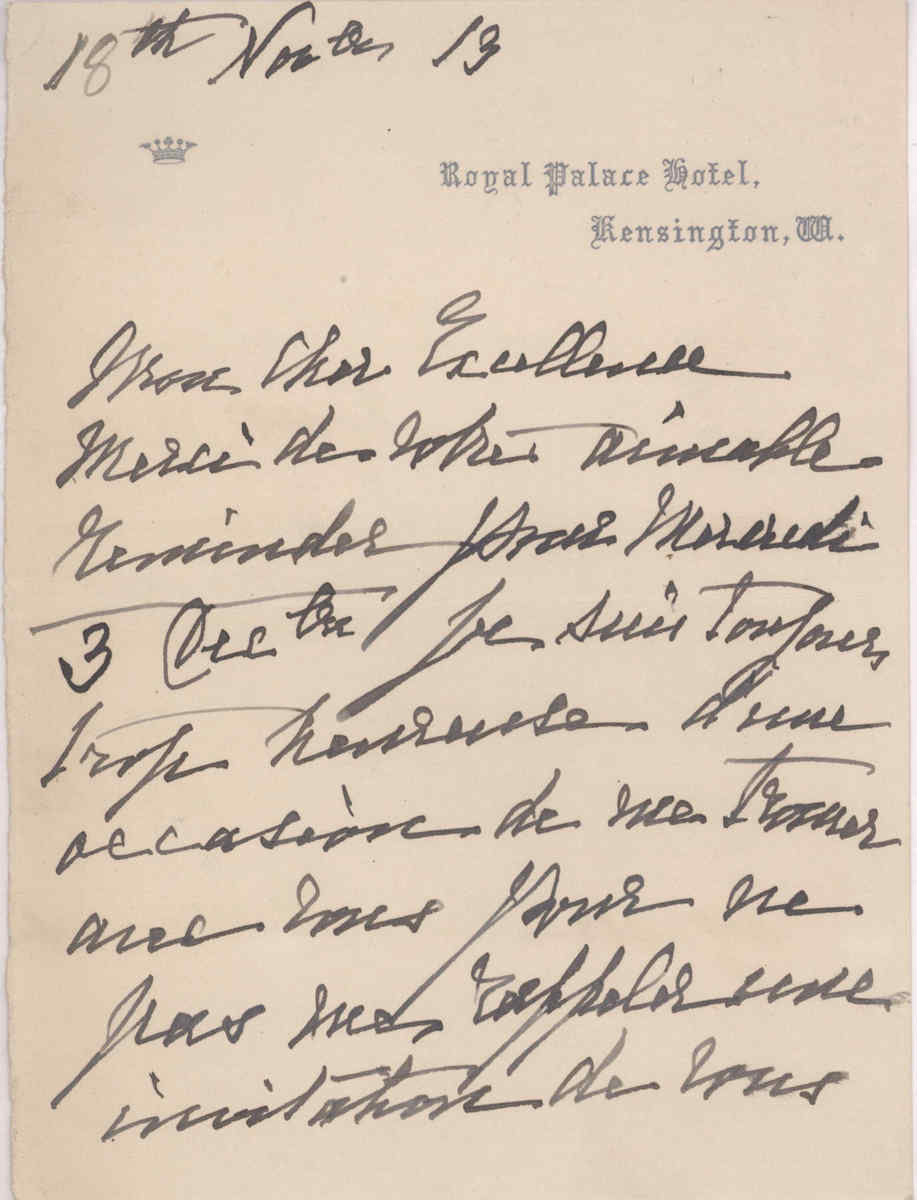 18th Novbr 13
Royal Palace Hotel,
Kensington, W.
Mon Cher Excellence
Merci de votre aimable
reminder pour Mercredi
3 Decbr je suis toujours
trop heureuse d'une
occasion de me trouver
avec vous pour ne
pas me rappeler une
invitation de vous